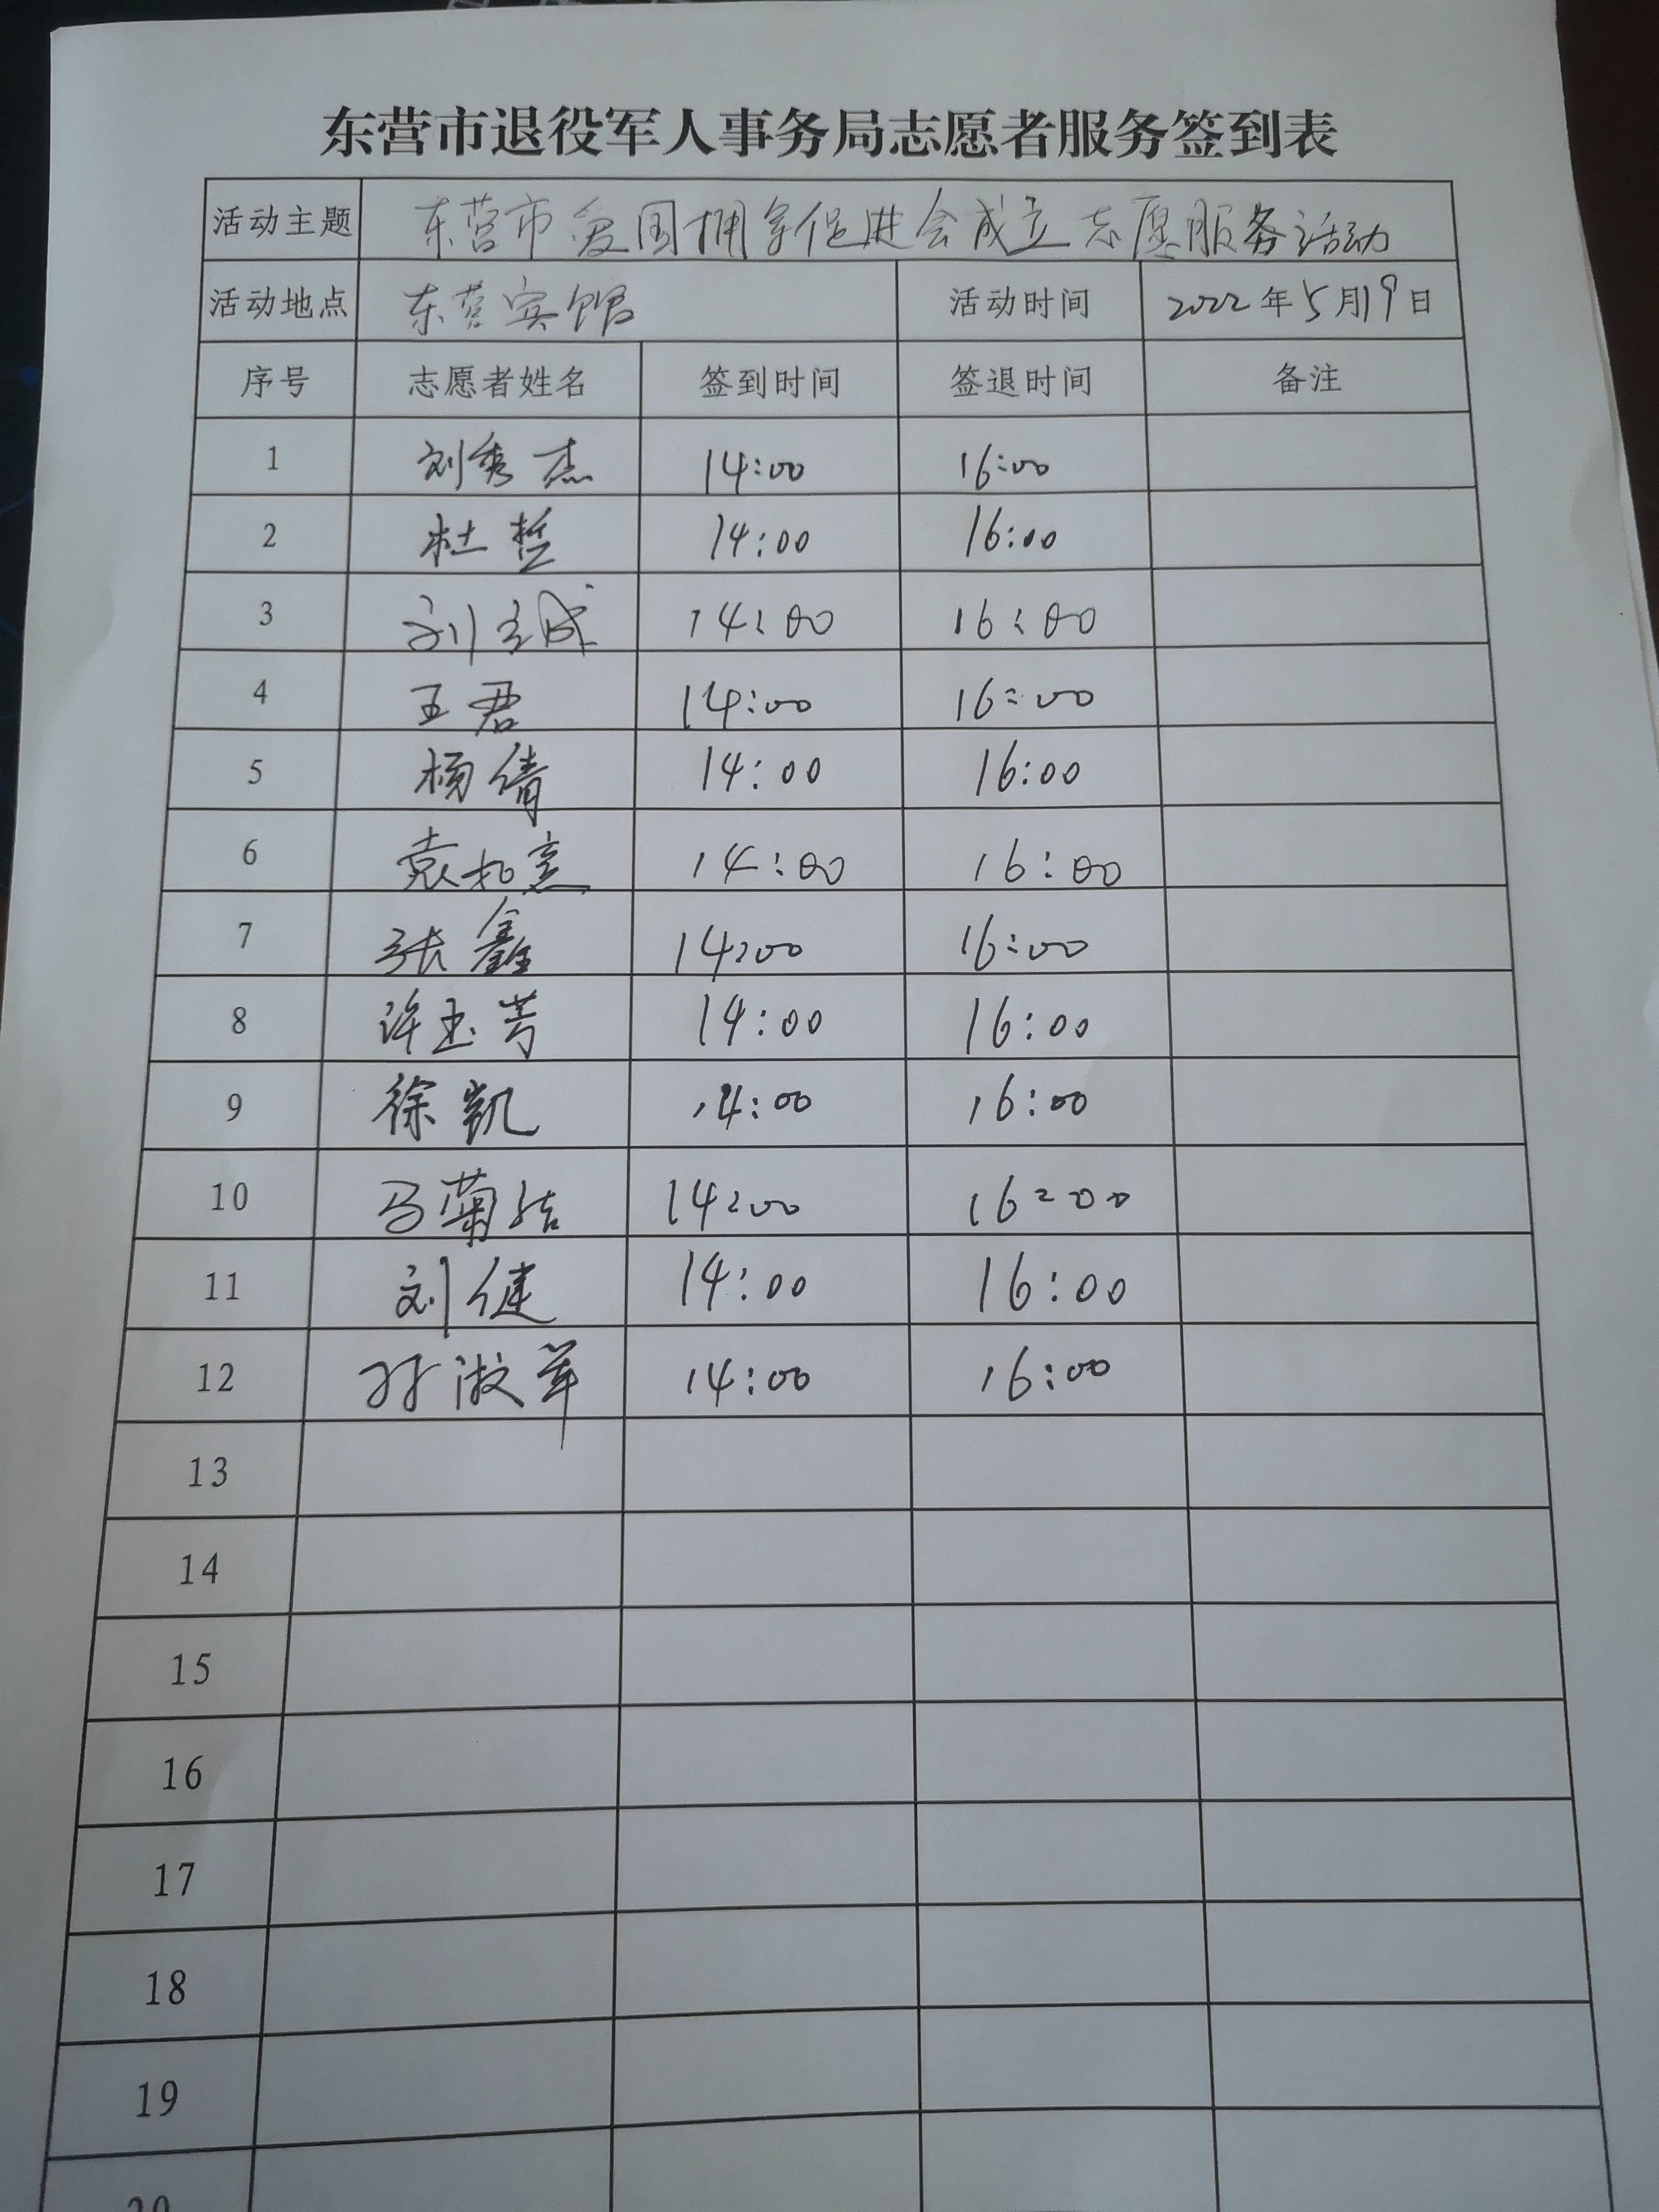 东营市退役军人事务局志愿者服务签到表
活动主题 东营市爱国拥军促进会成立志愿服务活动
活动地点 东营宾馆 活动时间 2022年5月19日
序号 志愿者姓名 签到时间 签退时间 备注
1 刘秀杰 14:00 16:00
2 杜哲 14:00 16:00
3 刘 14:00 16:00
4 王君 14:00 16:00
5 杨倩 14:00 16:00
6 袁如意 14:00 16:00
7 张鑫 14:00 16:00
8 许玉芳 14:00 16:00
9 徐凯 14:00 16:00
10 马菊洁 14:00 16:00
11 刘健 14:00 16:00
12 孙淑 14:00 16:00
13
14
15
16
17
18
19
20